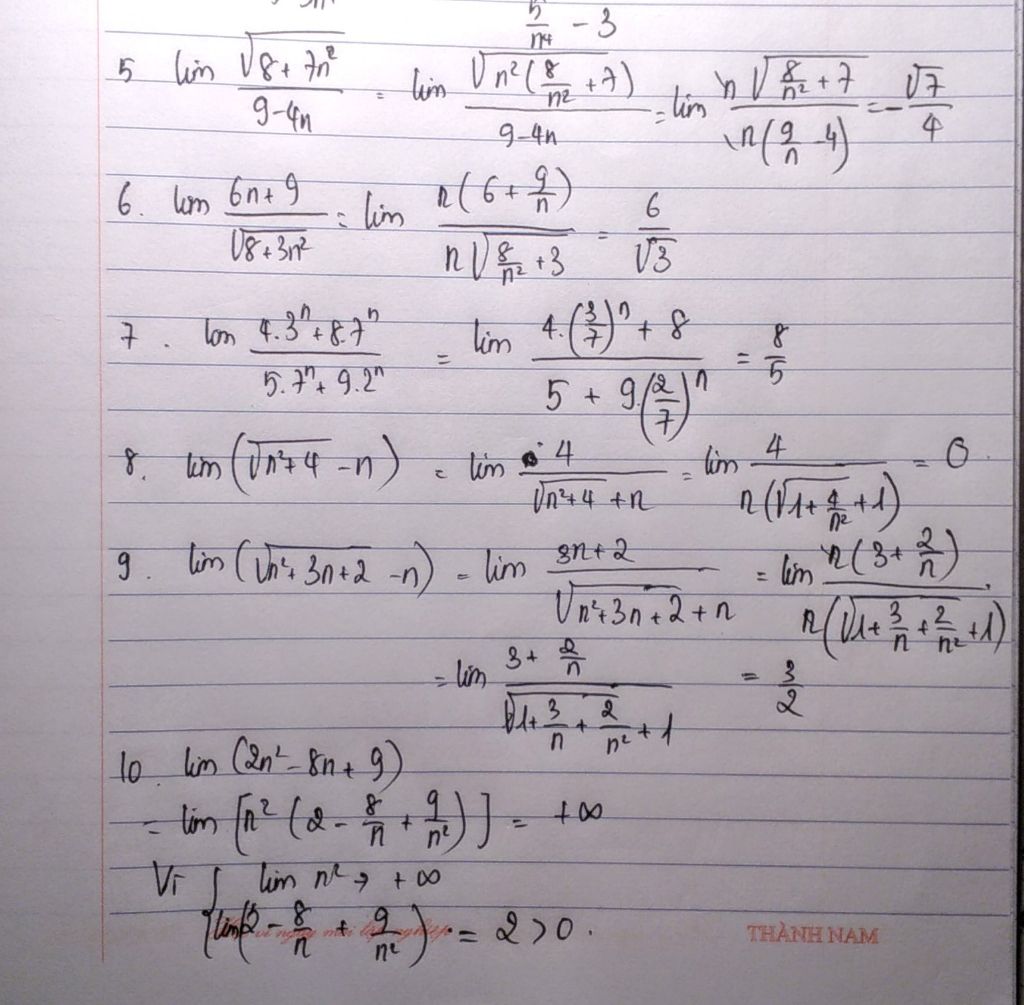 5/n⁴ - 3
5 lim √(8 + 7n²)/(9 - 4n) = lim √(n²(8/n² + 7))/(9 - 4n) = lim n√(8/n² + 7)/(n(9/n - 4)) = -√7/4
6. lim (6n + 9)/√(8 + 3n²) = lim n(6 + 9/n)/(n√(8/n² + 3)) = 6/√3
7. lim (4.3ⁿ + 8.7ⁿ)/(5.7ⁿ + 9.2ⁿ) = lim (4.(3/7)ⁿ + 8)/(5 + 9.(2/7)ⁿ) = 8/5
8. lim (√(n² + 4) - n) = lim 4/(√(n² + 4) + n) = lim 4/(n(√(1 + 4/n²) + 1)) = 0.
9. lim (√(n² + 3n + 2) - n) = lim (3n + 2)/(√(n² + 3n + 2) + n) = lim n(3 + 2/n)/(n(√(1 + 3/n + 2/n²) + 1))
= lim (3 + 2/n)/(√(1 + 3/n + 2/n²) + 1) = 3/2
10. lim (2n² - 8n + 9)
= lim [n² (2 - 8/n + 9/n²)] = +∞
Vì { lim n² → +∞
lim(2 - 8/n + 9/n²) = 2 > 0.
THÀNH NAM